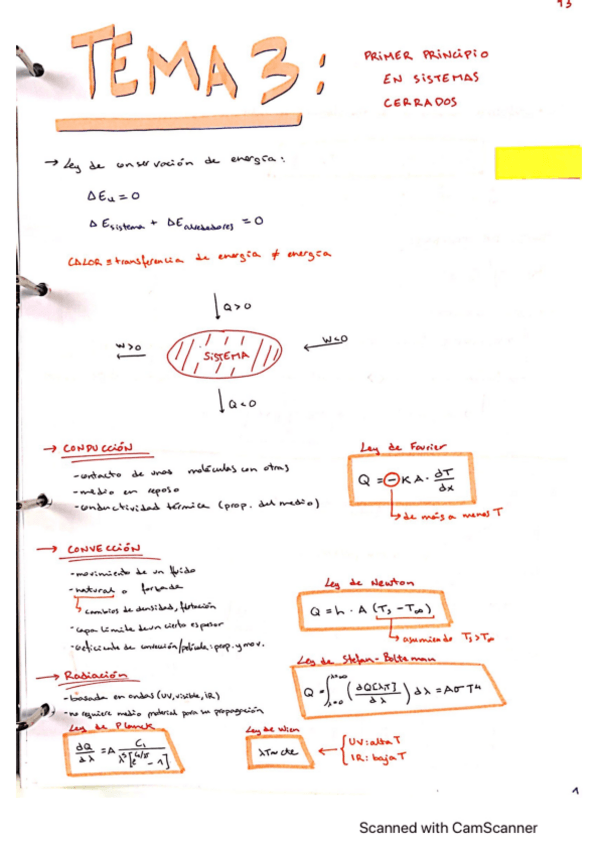 13
TEMA 3:
PRIMER PRINCIPIO
EN SISTEMAS
CERRADOS
→ Ley de conservación de energía:
ΔEu = 0
ΔE sistema + ΔE alrededores = 0
CALOR ≡ transferencia de energía ≠ energía
Q>0
W>0
SISTEMA
W<0
Q<0
→ CONDUCCIÓN
- contacto de unas moléculas con otras
- medio en reposo
- conductividad térmica (prop. del medio)
Ley de Fourier
Q = -KA · dT/dx
de más a menos T
→ CONVECCIÓN
- movimiento de un fluido
- natural o forzada
cambios de densidad, flotación
- capa límite de un cierto espesor
- coeficiente de convección/película: prop. y mov.
Ley de Newton
Q = h · A (Ts - T∞)
asumiendo Ts > T∞
→ Radiación
- basada en ondas (UV, visible, IR)
- no requiere medio material para su propagación
Ley de Stefan-Boltzmann
Q = ∫λ=0 λ=∞ (dQ[λT]/dλ) dλ = AσT⁴
Ley de Planck
dQ/dλ = A C₁/λ⁵[e^ - 1]
Ley de Wien
λT = cte
UV: alta T
IR: baja T
1
Scanned with CamScanner